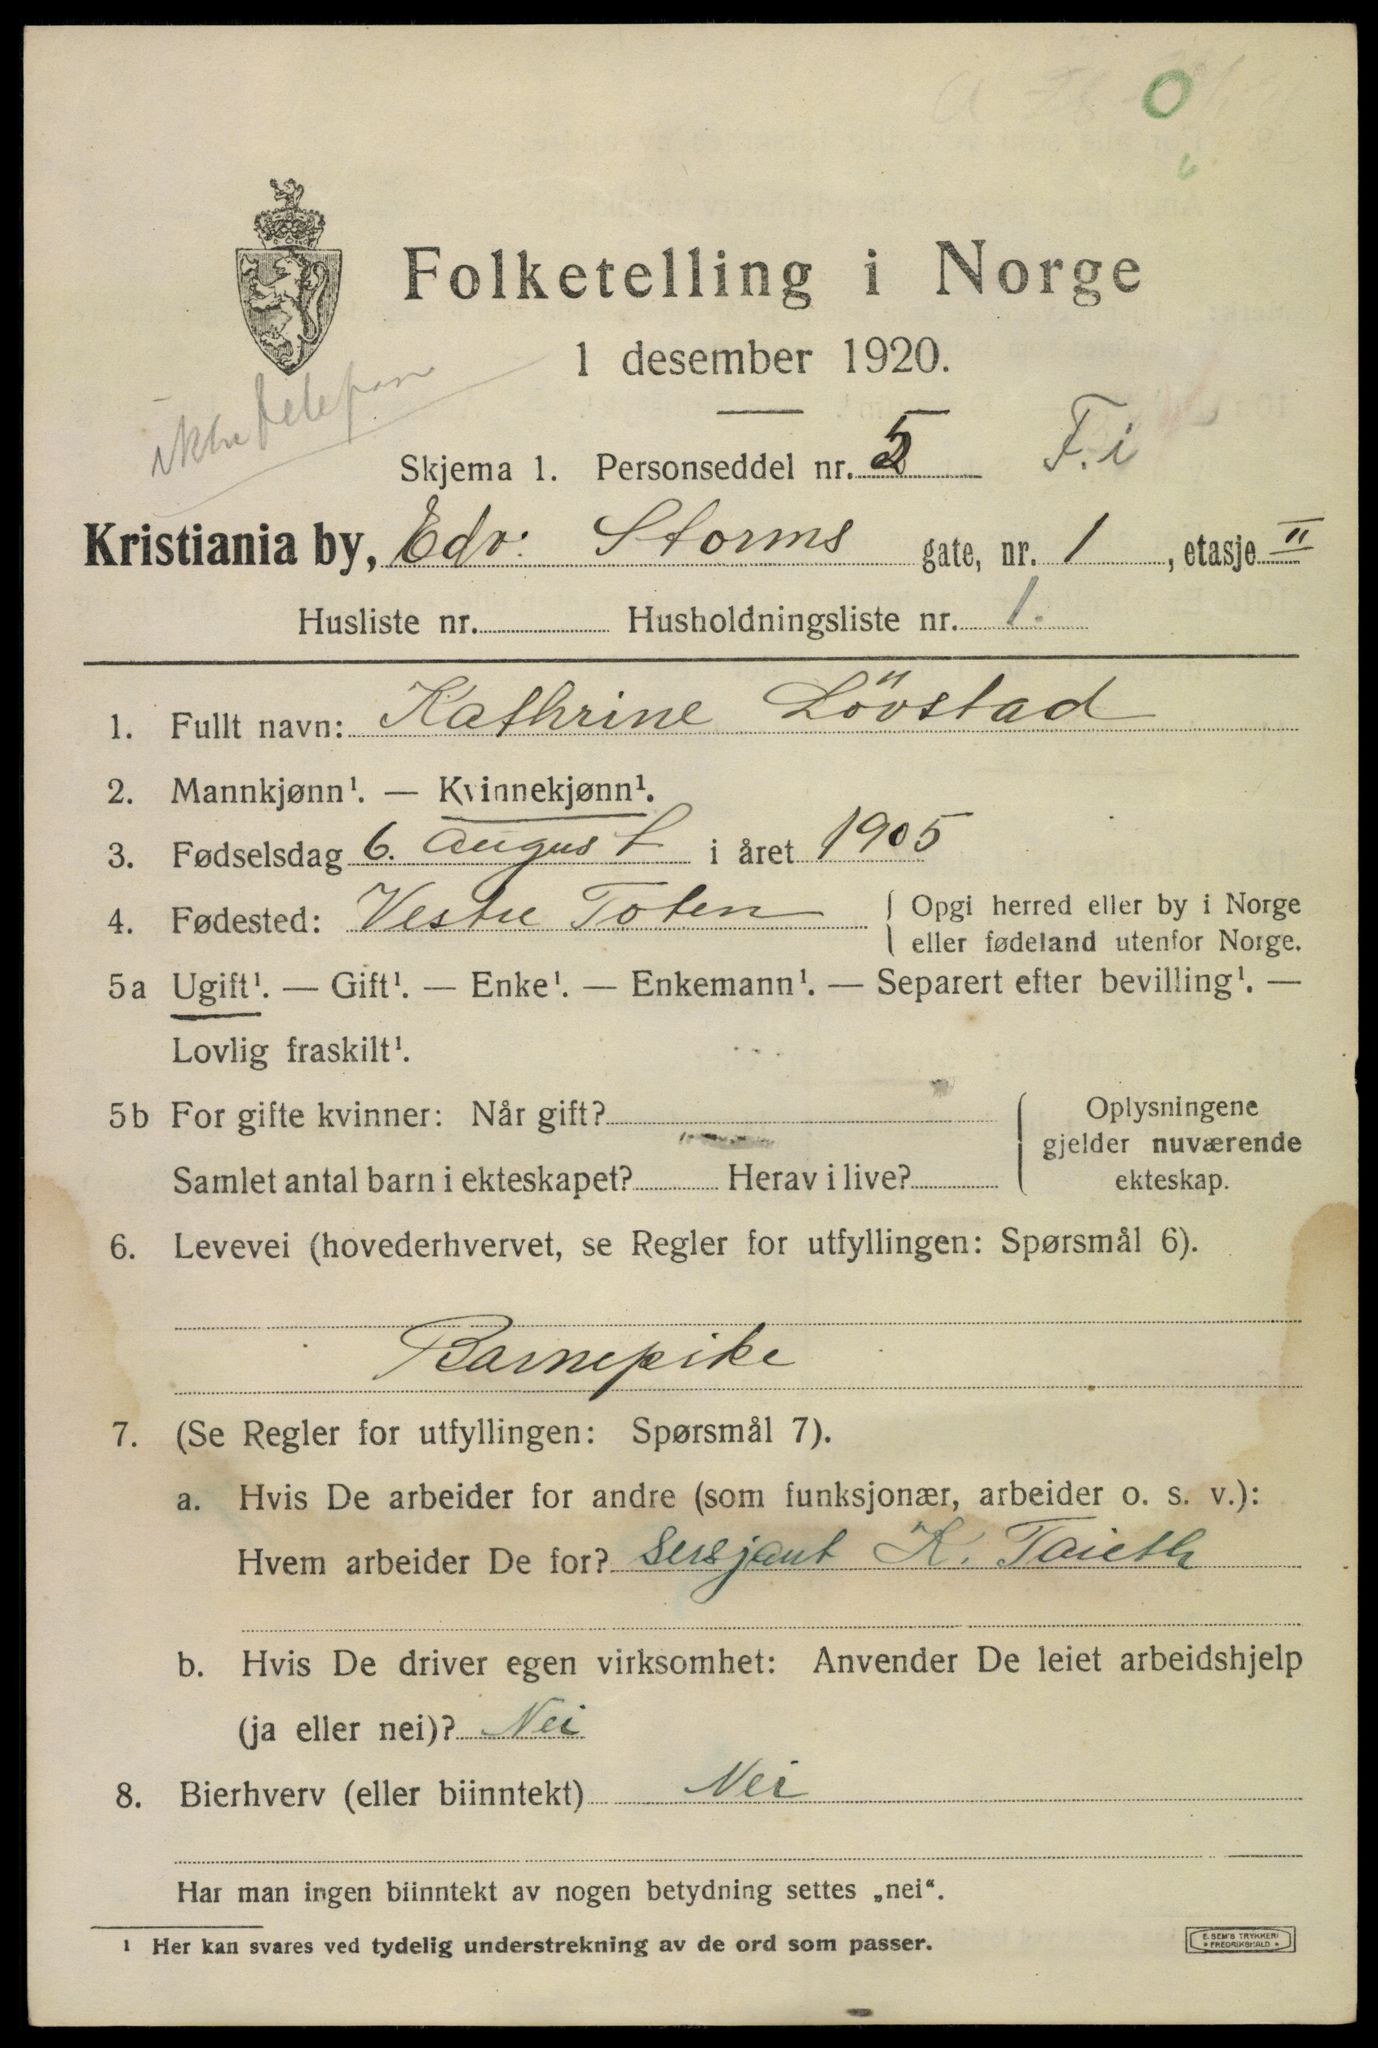 O
6
Folketelling i Norge
1 desember 1920.
ikke telefon
Skjema 1. Personseddel nr. 5 F.i
Kristiania by, Edv. Storms gate, nr. 1, etasje II
Husliste nr. Husholdningsliste nr. 1.
1. Fullt navn: Kathrine Lövstad
2. Mannkjønn¹. — Kvinnekjønn¹.
3. Fødselsdag 6. august i året 1905
4. Fødested: Vestre Toten { Opgi herred eller by i Norge
eller fødeland utenfor Norge.
5a Ugift¹. — Gift¹. — Enke¹. — Enkemann¹. — Separert efter bevilling¹. —
Lovlig fraskilt¹.
5b For gifte kvinner: Når gift? { Oplysningene
gjelder nuværende
Samlet antal barn i ekteskapet? Herav i live? ekteskap.
6. Levevei (hovederhvervet, se Regler for utfyllingen: Spørsmål 6).
Barnepike
7. (Se Regler for utfyllingen: Spørsmål 7).
a. Hvis De arbeider for andre (som funksjonær, arbeider o. s. v.):
Hvem arbeider De for? Sersjant K.
b. Hvis De driver egen virksomhet: Anvender De leiet arbeidshjelp
(ja eller nei)? Nei
8. Bierhverv (eller biinntekt) Nei
Har man ingen biinntekt av nogen betydning settes „nei“.
¹ Her kan svares ved tydelig understrekning av de ord som passer.
E. SEM'S TRYKKERI
* FREDRIKSHALD *